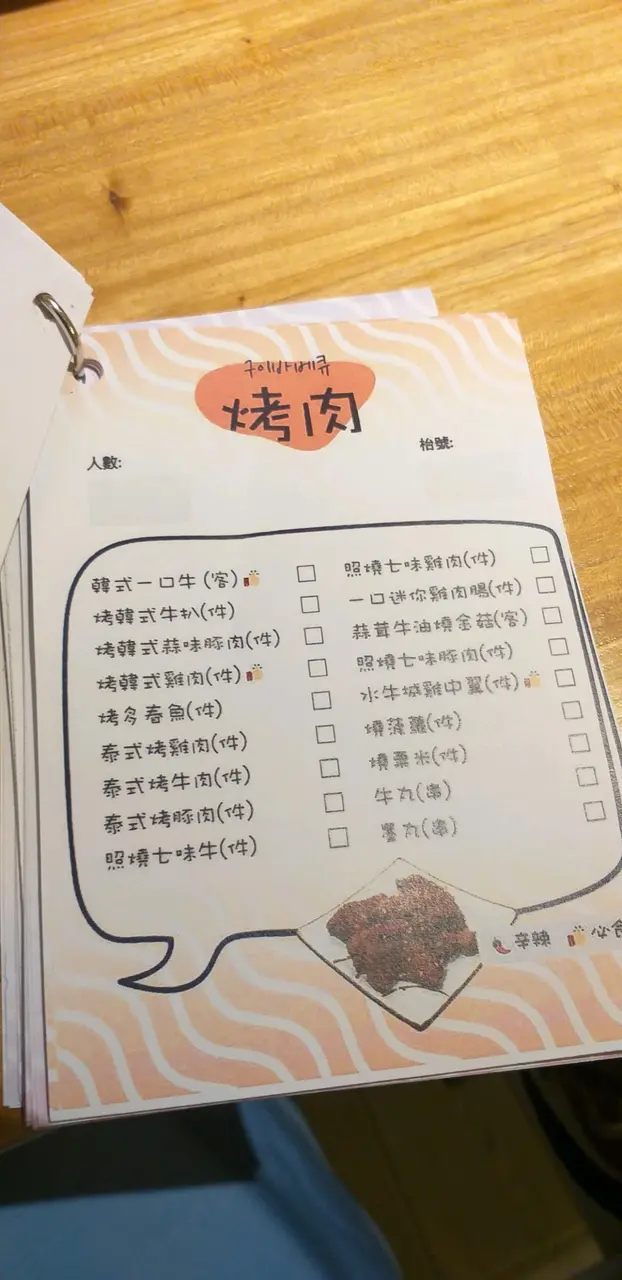 구이바베큐
烤肉
人數:
枱號:
韓式一口牛(客)
烤韓式牛扒(件)
烤韓式蒜味豚肉(件)
烤韓式雞肉(件)
烤多春魚(件)
泰式烤雞肉(件)
泰式烤牛肉(件)
泰式烤豚肉(件)
照燒七味牛(件)
照燒七味雞肉(件)
一口迷你雞肉腸(件)
蒜茸牛油燒金菇(客)
照燒七味豚肉(件)
水牛城雞中翼(件)
燒菠蘿(件)
燒粟米(件)
牛丸(串)
墨丸(串)
辛辣
必食